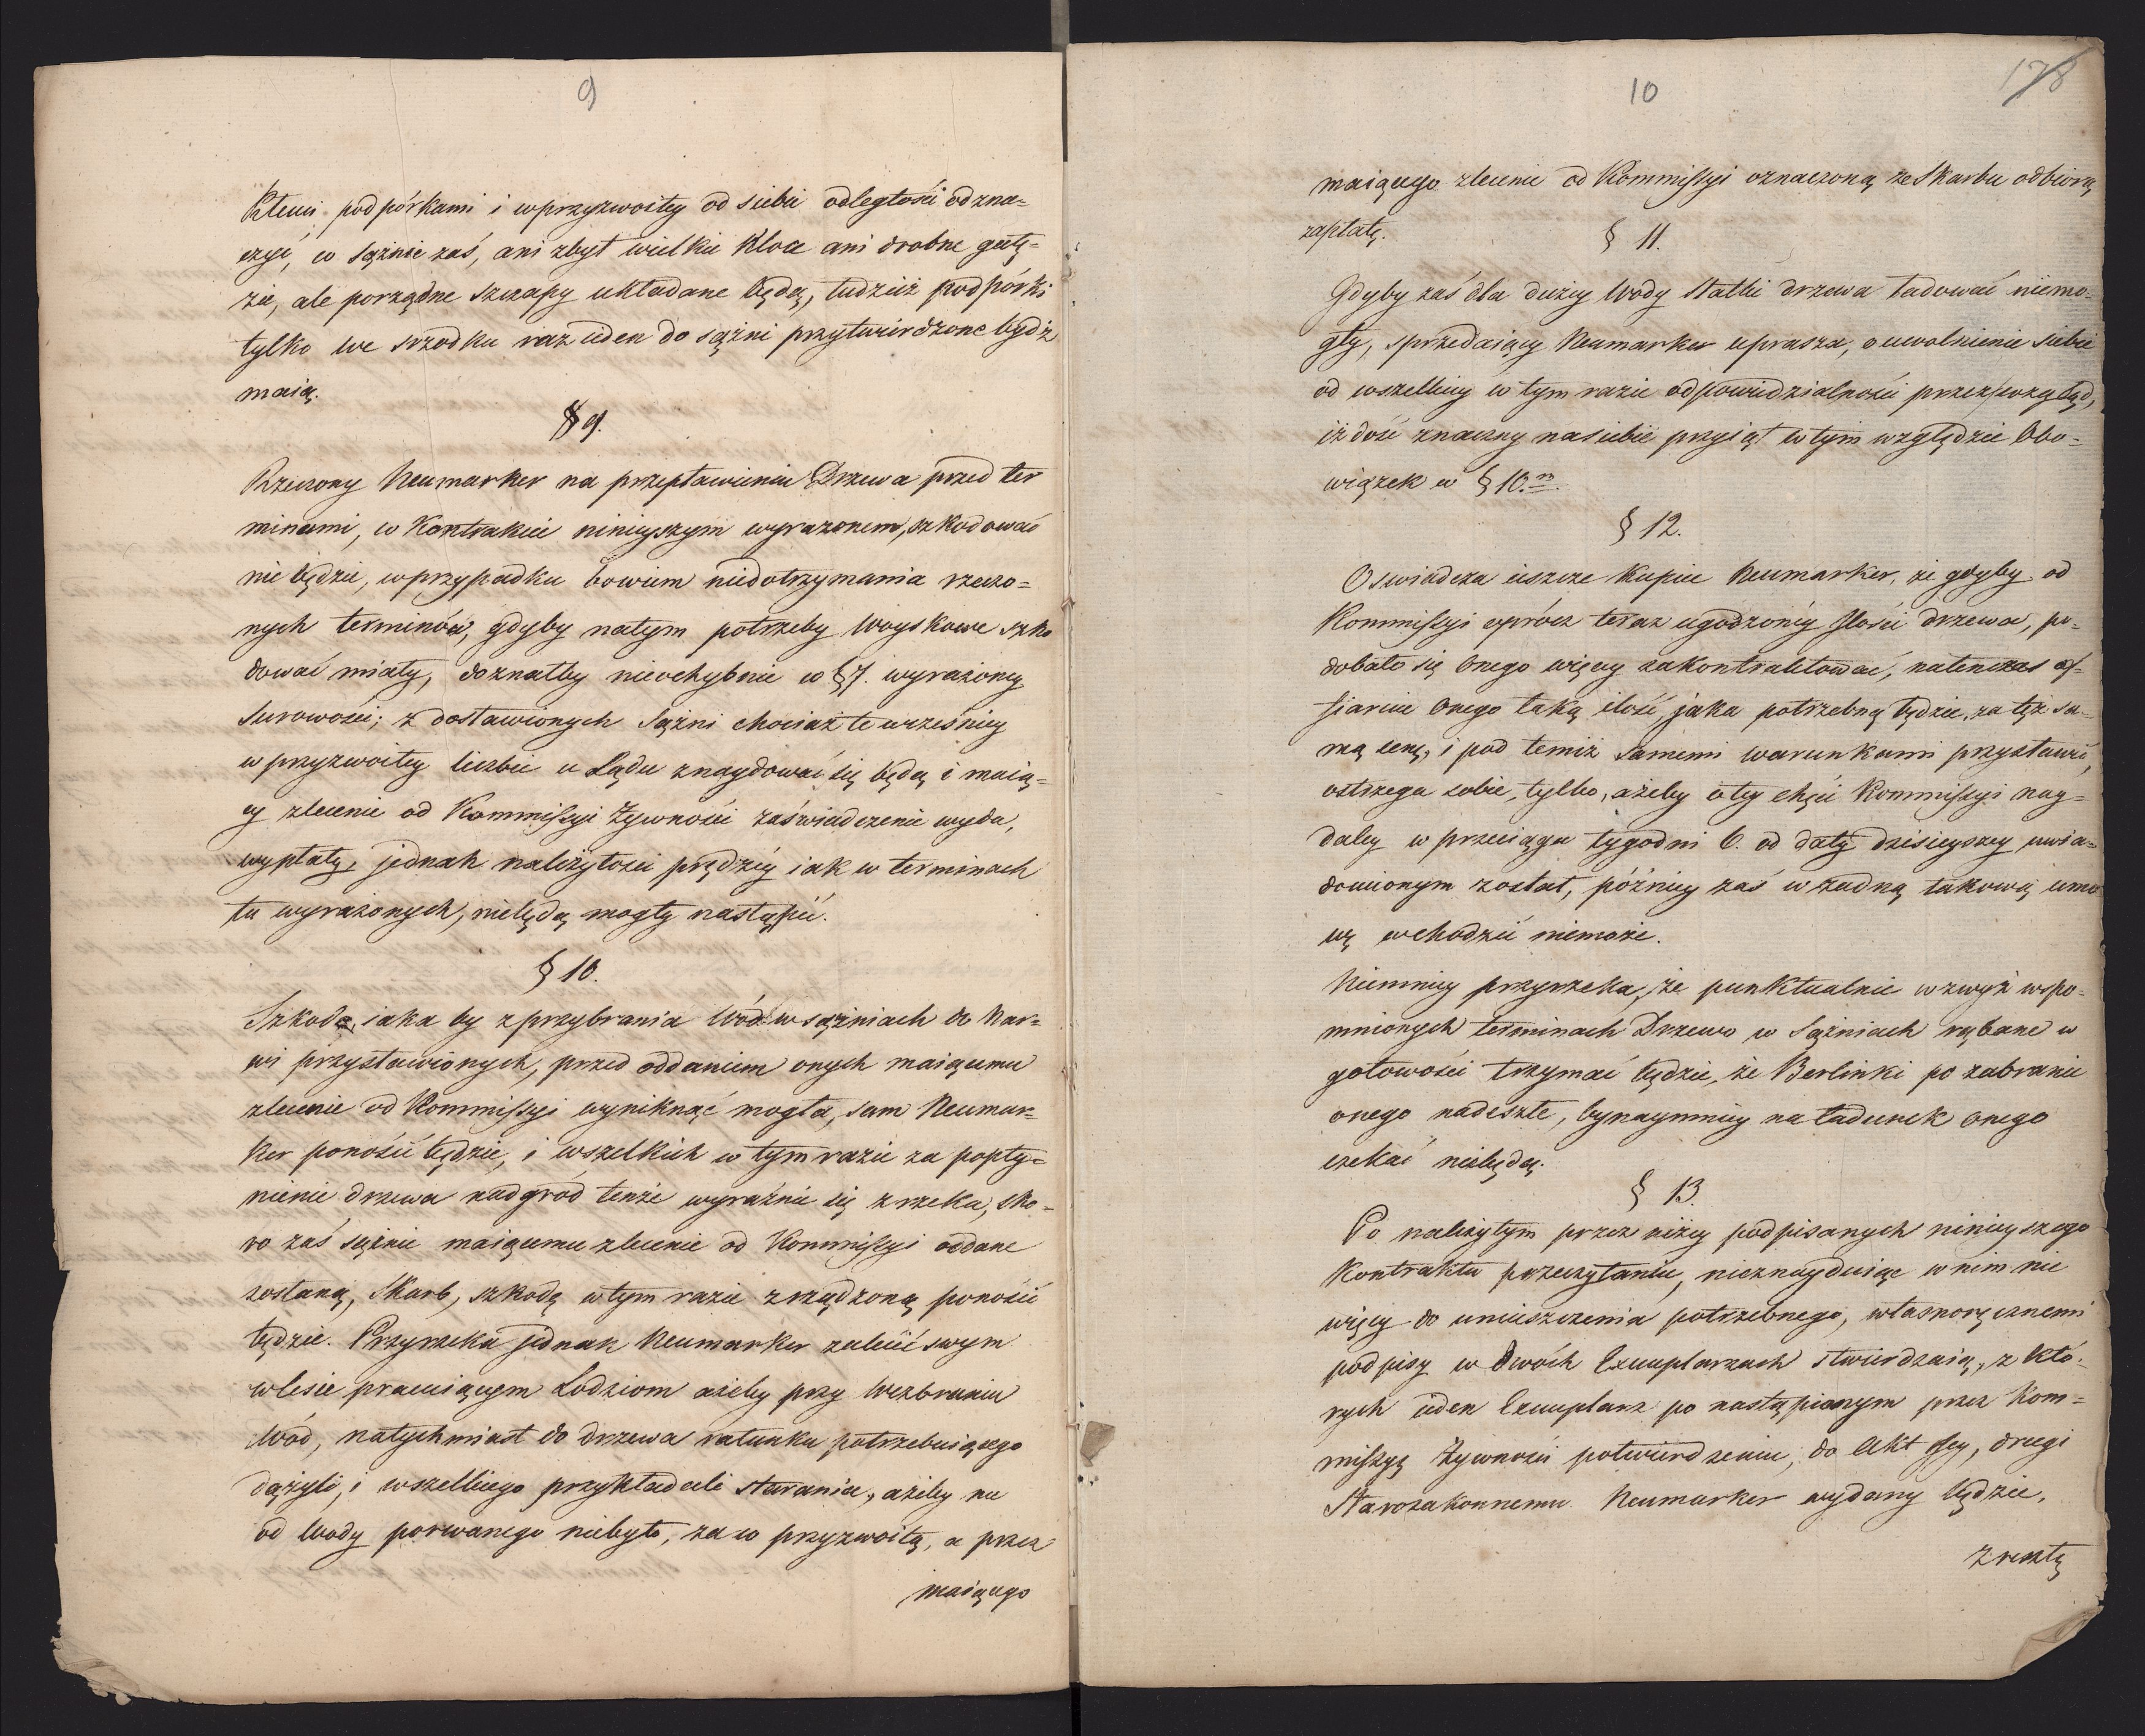 9
kłemi podpórkami i wprzyzwoitey od siebie odległości odzna=
czyć, w Sążnie zaś, ani zbyt wielkie Kloce ani drobne gałę=
zie, ale porządne szczapy układane będą, tudzież podpórki
tylko we srzodku raz ieden do sążni przytwierdzone bydź
maią.
§ 9.
Rzeczony Neumarker na przepławieniu Drzewa przed ter
minami, w Kontrakcie ninieyszym wyrażonem, szkodować
nie będzie, wprzypadku bowiem niedotrzymania rzeczo=
nych terminów, gdyby natym potrzeby Woyskowe szko
dować miały, doznałby nieochybnie w § 7. wyrażoney
surowości; z dostawionych Sążni chociaż te wcześniey
w przyzwoitey liczbie u Lądu znaydować się będą i maią=
cy zlecenie od Kommissyi Żywności zaświadczenie wyda,
wypłaty, jednak należytości prędzéy iak w terminach
tu wyrażonych, niebędą mogły nastąpić.
§ 10.
Szkodę, iaka by z przybrania Wód w sążniach do Nar=
wi przystawionych, przed oddaniem onych maiącemu
zlecenie od Kommissyi wyniknąć mogła, sam Neumar=
ker ponosić będzie, i wszelkich w tym razie za popły=
nienie drzewa nadgród tenże wyraźnie się zrzeka, sko=
ro zaś sążnie maiącemu zlecenie od Kommissyi oddane
zostaną, Skarb, szkodę wtym razie zrządzoną ponosić
będzie. Przyrzeka jednak Neumarker zalecić swym
wlesie pracuiącym Ludziom ażeby przy Wezbraniu
Wód, natychmiast do drzewa ratunku potrzebuiącego
dążyli, i wszelkiego przykładali starania, ażeby na
od Wody porwanego niebyło, za co przyzwoitą, a przez
maiącego
10
178
maiącego zlecenie od Kommissyi oznaczoną ze Skarbu odbiorą
zapłatę.
§ 11.
Gdyby zaś dla dużey Wody Statki drzewa ładować niemo=
gły, sprzedaiący Neumarker uprasza, o uwolnienie siebie
od wszelkiey w tym razie odpowiedzialności przez wzgląd,
iż dość znaczny nasiebie przyiął w tym względzie Obo=
wiązek w § 10.m
§ 12.
Oswiadcza ieszcze Kupiec Neumarker, że gdyby od
Kommissyi oprócz teraz ugodzonéy Jlości drzewa, po=
dobało się Onego więcey zakontraktować, natenczas of=
fiaruie Onego taką ilość, jaka potrzebną będzie, za tęż sa=
mą cenę, i pod temiż samemi warunkami przystawić,
ostrzega sobie, tylko, ażeby o tey chęci Kommissyi nay=
daley w przeciągu tygodni 6. od daty dzisieyszey uwia=
domionym został, późniey zaś w żadną takową umo
wę wchodzić niemoże.
Niemniey przyrzeka, że punktualnie wzwyż wspo=
mnionych terminach Drzewo w Sążniach rąbane w
gotowości trzymać będzie, że Berlinki po zabranie
onego nadeszłe, bynaymniey na ładunek onego
czekać niebędą.
§ 13.
Po należytym przez niżey podpisanych ninieyszego
Kontraktu przeczytaniu, nieznayduiąc w nim nic
więcy do umieszczenia potrzebnego, własnoręcznemi
podpisy w dwóch Exemplarzach stwierdzaią, z któ=
rych ieden Exemplarz po nastąpionym przez Kom=
missyą Żywności potwierdzeniu, do Akt Jey, drugi
Starozakonnemu Neumarker wydany będzie.
Zresztą